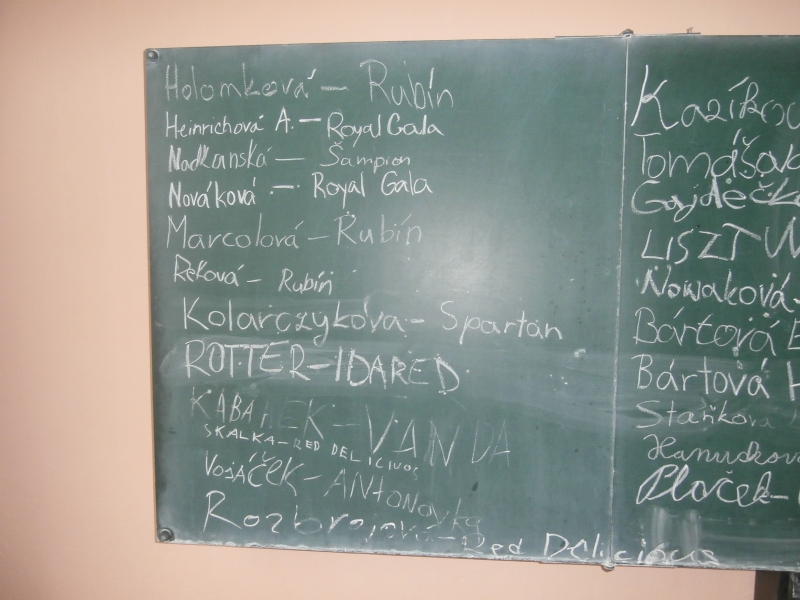 Holomková - Rubín
Heinrichová A. - Royal Gala
Nadkanská - Šampion
Nováková - Royal Gala
Marcolová - Rubín
Reková - Rubín
Kolarczyková - Spartan
ROTTER - IDARED
KABANEK - VANDA
SKALKA - RED DELICIVOS
VOJÁČEK - ANTONOVKA
Rozbrojová - Red Delicious
Kazíkov
Tomášov
Gajdečk
LISZT
Nowaková -
Bártová E
Bártová H
Staňková
Hanudkov
Plaček -